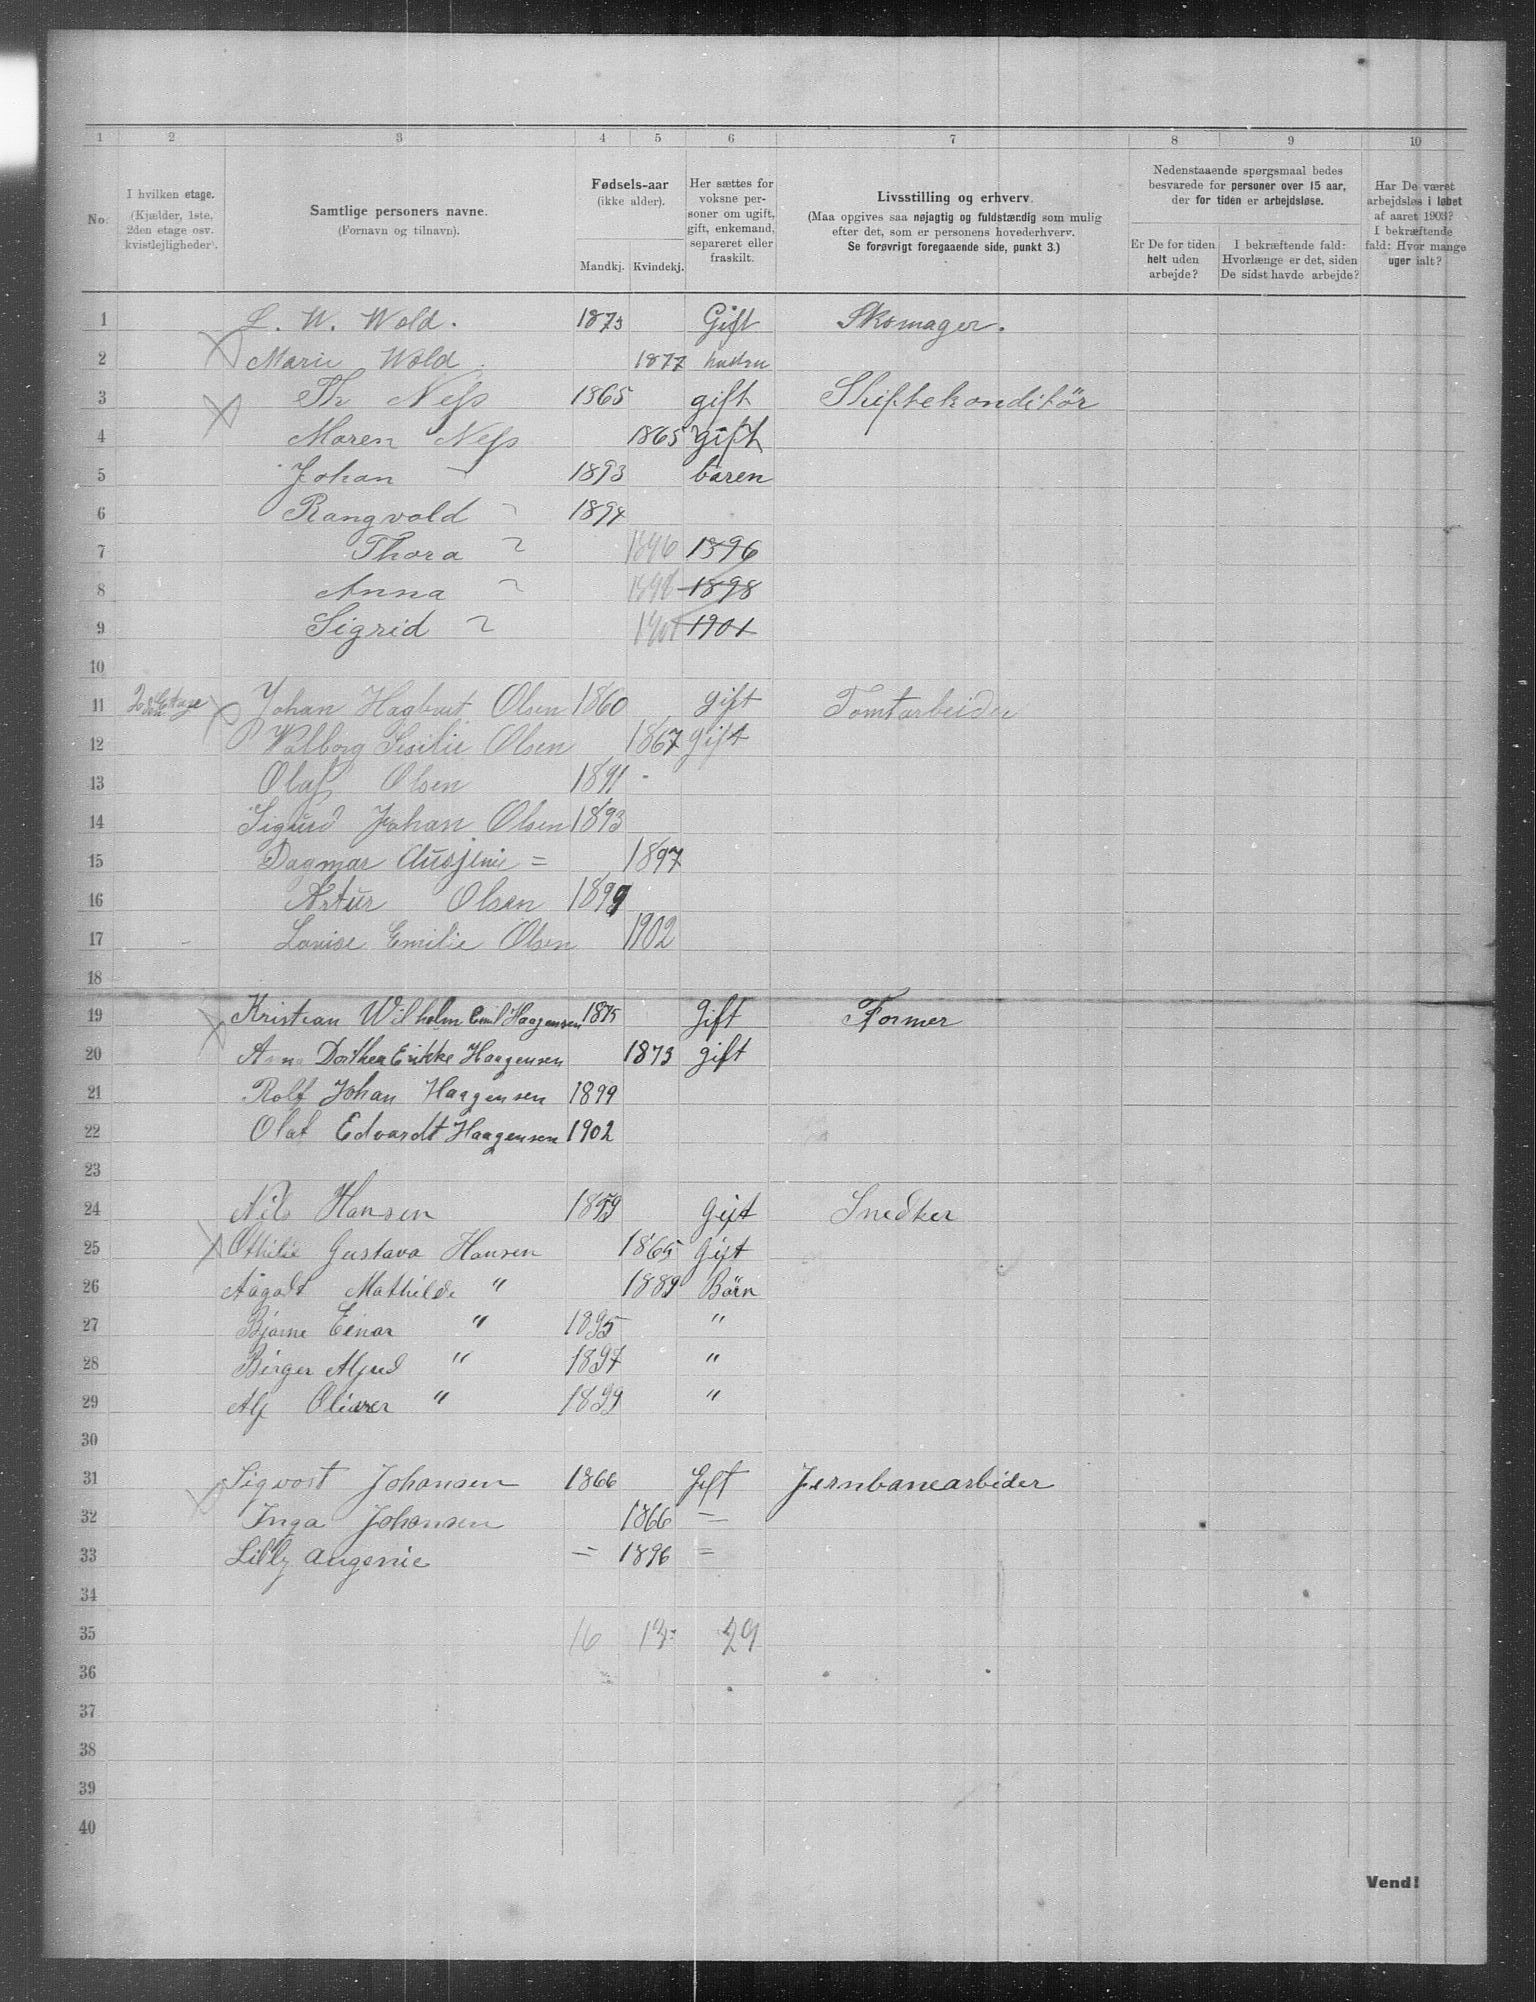 1 2 3 4 5 6 7 8 9 10
No.
I hvilken etage. (Kjælder, 1ste, 2den etage osv. kvistlejligheder).
Samtlige personers navne. (Fornavn og tilnavn).
Fødsels-aar (ikke alder). Mandkj. Kvindekj.
Her sættes for voksne personer om ugift, gift, enkemand, separeret eller fraskilt.
Livsstilling og erhverv. (Maa opgives saa nøjagtig og fuldstærdig som mulig efter det, som er personens hovederhverv. Se forøvrigt foregaaende side, punkt 3.)
Nedenstaaende spørgsmaal bedes besvarede for personer over 15 aar, der for tiden er arbejdsløse.
Er De for tiden helt uden arbejde?
I bekræftende fald: Hvorlænge er det, siden De sidst havde arbejde?
Har De været arbejdsløs i løbet af aaret 1903? I bekræftende fald: Hvor mange uger ialt?
1 L. W. Wold. 1873 Gift Skomager.
2 Marie Wold 1877
3 Th Ness 1865 gift Skifskonditör
4 Maren Ness 1865 gift
5 Johan 1893 baren
6 Rangvald " 1894
7 Thora " 1896 1896
8 Anna " 1898 1898
9 Sigrid " 1901 1901
10
11 2den Etage Johan Hagbart Olsen 1860 gift Tomtarbeider
12 Valborg Sisilie Olsen 1867 gift
13 Olaf Olsen 1891 -
14 Sigurd Johan Olsen 1893
15 Dagmar Ausjenie = 1897
16 Artur Olsen 1899
17 Lovise Emilie Olsen 1902
18
19 Kristian Wilhelm Emil Haagensen 1875 Gift Former
20 Anna Dorthea Erikke Haagensen 1873 gift
21 Rolf Johan Haagensen 1899
22 Olaf Edvardt Haagensen 1902
23
24 Nils Hansen 1859 Gift Snedker
25 Othilie Gustava Hansen 1865 Gift
26 Aagodt Mathilde " 1889 Börn
27 Bjarne Einar " 1895 "
28 Birger Alfred " 1897 "
29 Alf Oliver " 1899 "
30
31 Sigvart Johansen 1866 Gift Jernbanearbider
32 Inga Johansen 1866 =
33 Lilly Augenie = 1896 =
34
35 16 13 29
36
37
38
39
40
Vend!